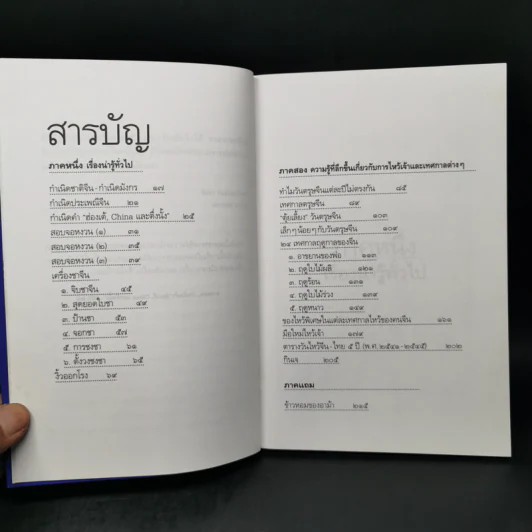 สารบัญ
ภาคหนึ่ง เรื่องน่ารู้ทั่วไป
กำเนิดชาติจีน - กำเนิดมังกร ๑๗
กำเนิดประเพณีจีน ๒๑
กำเนิดคำ "ฮ่องเต้, China และตึ่งนั้ง" ๒๕
สอบจอหงวน (๑) ๓๑
สอบจอหงวน (๒) ๓๕
สอบจอหงวน (๓) ๓๙
เครื่องชาจีน
๑. จิบชาจีน ๔๕
๒. สุดยอดใบชา ๔๙
๓. ป้านชา ๕๓
๔. จอกชา ๕๗
๕. การชงชา ๖๑
๖. ตั้งวงชงชา ๖๕
งิ้วออกโรง ๖๙
ภาคสอง ความรู้ที่ลึกขึ้นเกี่ยวกับการไหว้เจ้าและเทศกาลต่างๆ
ทำไมวันตรุษจีนแต่ละปีไม่ตรงกัน ๘๕
เทศกาลตรุษจีน ๘๙
"ตุ้ยเลี้ยง" วันตรุษจีน ๑๐๓
เล็กๆ น้อยๆ กับวันตรุษจีน ๑๐๙
๒๔ เทศกาลฤดูกาลของจีน
๑. อาชยานของพ่อ ๑๑๓
๒. ฤดูใบไม้ผลิ ๑๒๑
๓. ฤดูร้อน ๑๓๑
๔. ฤดูใบไม้ร่วง ๑๓๙
๕. ฤดูหนาว ๑๔๙
ของไหว้พิเศษในแต่ละเทศกาลไหว้ของคนจีน ๑๖๑
มือใหม่ไหว้เจ้า ๑๗๙
ตารางวันไหว้จีน - ไทย ๕ ปี (พ.ศ. ๒๕๔๑ - ๒๕๔๕) ๒๐๒
กินเจ ๒๐๕
ภาคแถม
ข้าวหอมของอาม้า ๒๑๕